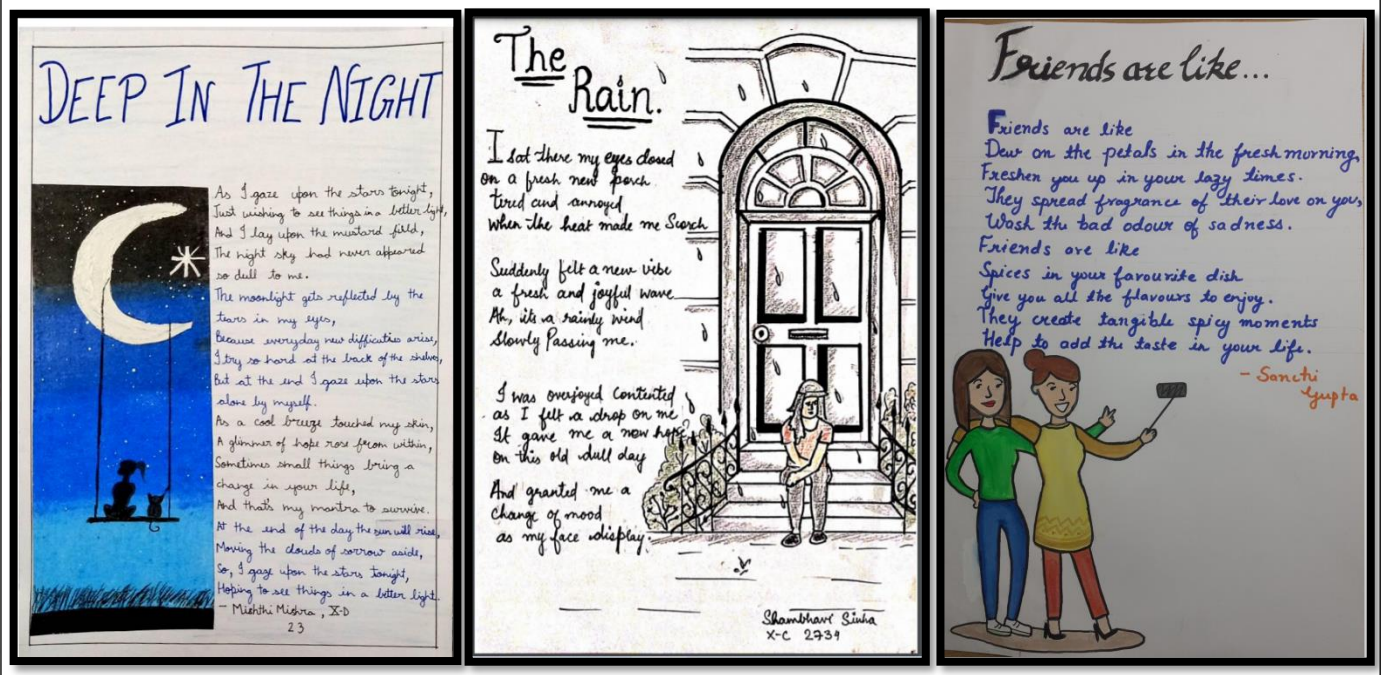 DEEP IN THE NIGHT
As I gaze upon the stars tonight,
Just wishing to see things in a better light,
And I lay upon the mustard field,
The night sky had never appeared
so dull to me.
The moonlight gets reflected by the
tears in my eyes,
Because everyday new difficulties arise,
I try so hard at the back of the shelves,
But at the end I gaze upon the stars
alone by myself.
As a cool breeze touched my skin,
A glimmer of hope rose from within,
Sometimes small things bring a
change in your life,
And that's my mantra to survive.
At the end of the day the sun will rise,
Moving the clouds of sorrow aside,
So, I gaze upon the stars tonight,
Hoping to see things in a better light.
- Mishthi Mishra, X-D
23
The
Rain.
I sat there my eyes closed
on a fresh new porch
tired and annoyed
when the heat made me Scorch
Suddenly felt a new vibe
a fresh and joyful wave
Ah, its a rainly wind
Slowly Passing me.
I was overjoyed contented
as I felt a drop on me
It gave me a new hope
on this old dull day
And granted me a
change of mood
as my face display.
Shambhavi Sinha
X-C 2739
Friends are like...
Friends are like
Dew on the petals in the fresh morning,
Freshen you up in your lazy times.
They spread fragrance of their love on you,
Wash the bad odour of sadness.
Friends are like
Spices in your favourite dish
Give you all the flavours to enjoy.
They create tangible spicy moments
Help to add the taste in your life.
- Sanchi
Gupta